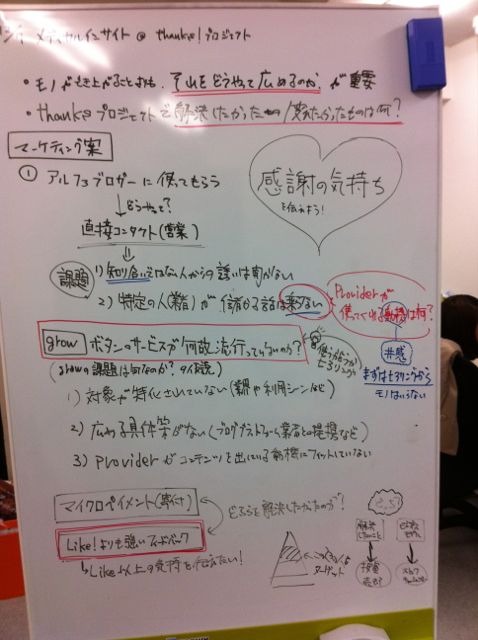 メディカルインサイト @ thanks!プロジェクト
・モノができ上がることよりも、それをどうやって広めるのか、が重要
・thanksプロジェクトで解決したかった 変えたかったものは何?
マーケティング案
① アルファブロガーに使ってもらう
↓どうやって?
直接コンタクト(営業)
感謝の気持ち
を伝えよう!
課題
1) 知り合いではない人からの誘いは聞かない
2) 特定の人(業者)が儲かる話は乗らない
Providerが
使ってくれる動機は何?
#感
まずはヒアリングから
モノはいらない
grow ボタンのサービスが何故流行っていないのか?
(growの課題は何なのか?
1) 対象が特化されていない(業界や利用シーンなど)
2) 広める具体策がない(ブログプラットフォーム業者との提携など)
3) Providerがコンテンツを出している動機にフィットしていない
マイクロペイメント(寄付)
どちらを解決したかったのか?
Like!よりも強いフィードバック
↳Like以上の気持を伝えたい!
ターゲット